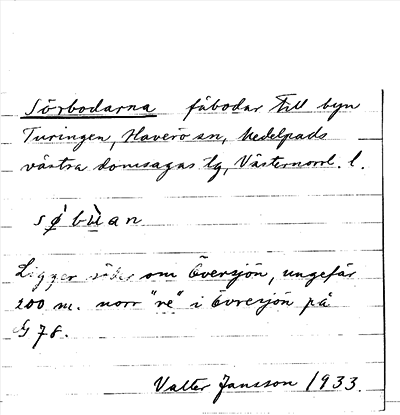 Sörbodarna fäbodar till byn
Turingen, Haverö sn, Medelpads
västra domsagas tg, Västernorrl. l.
sø̀bùan
Ligger söder om Översjön, ungefär
200 m. norr "re" i Övresjön på
G 78.
Valter Jansson 1933.